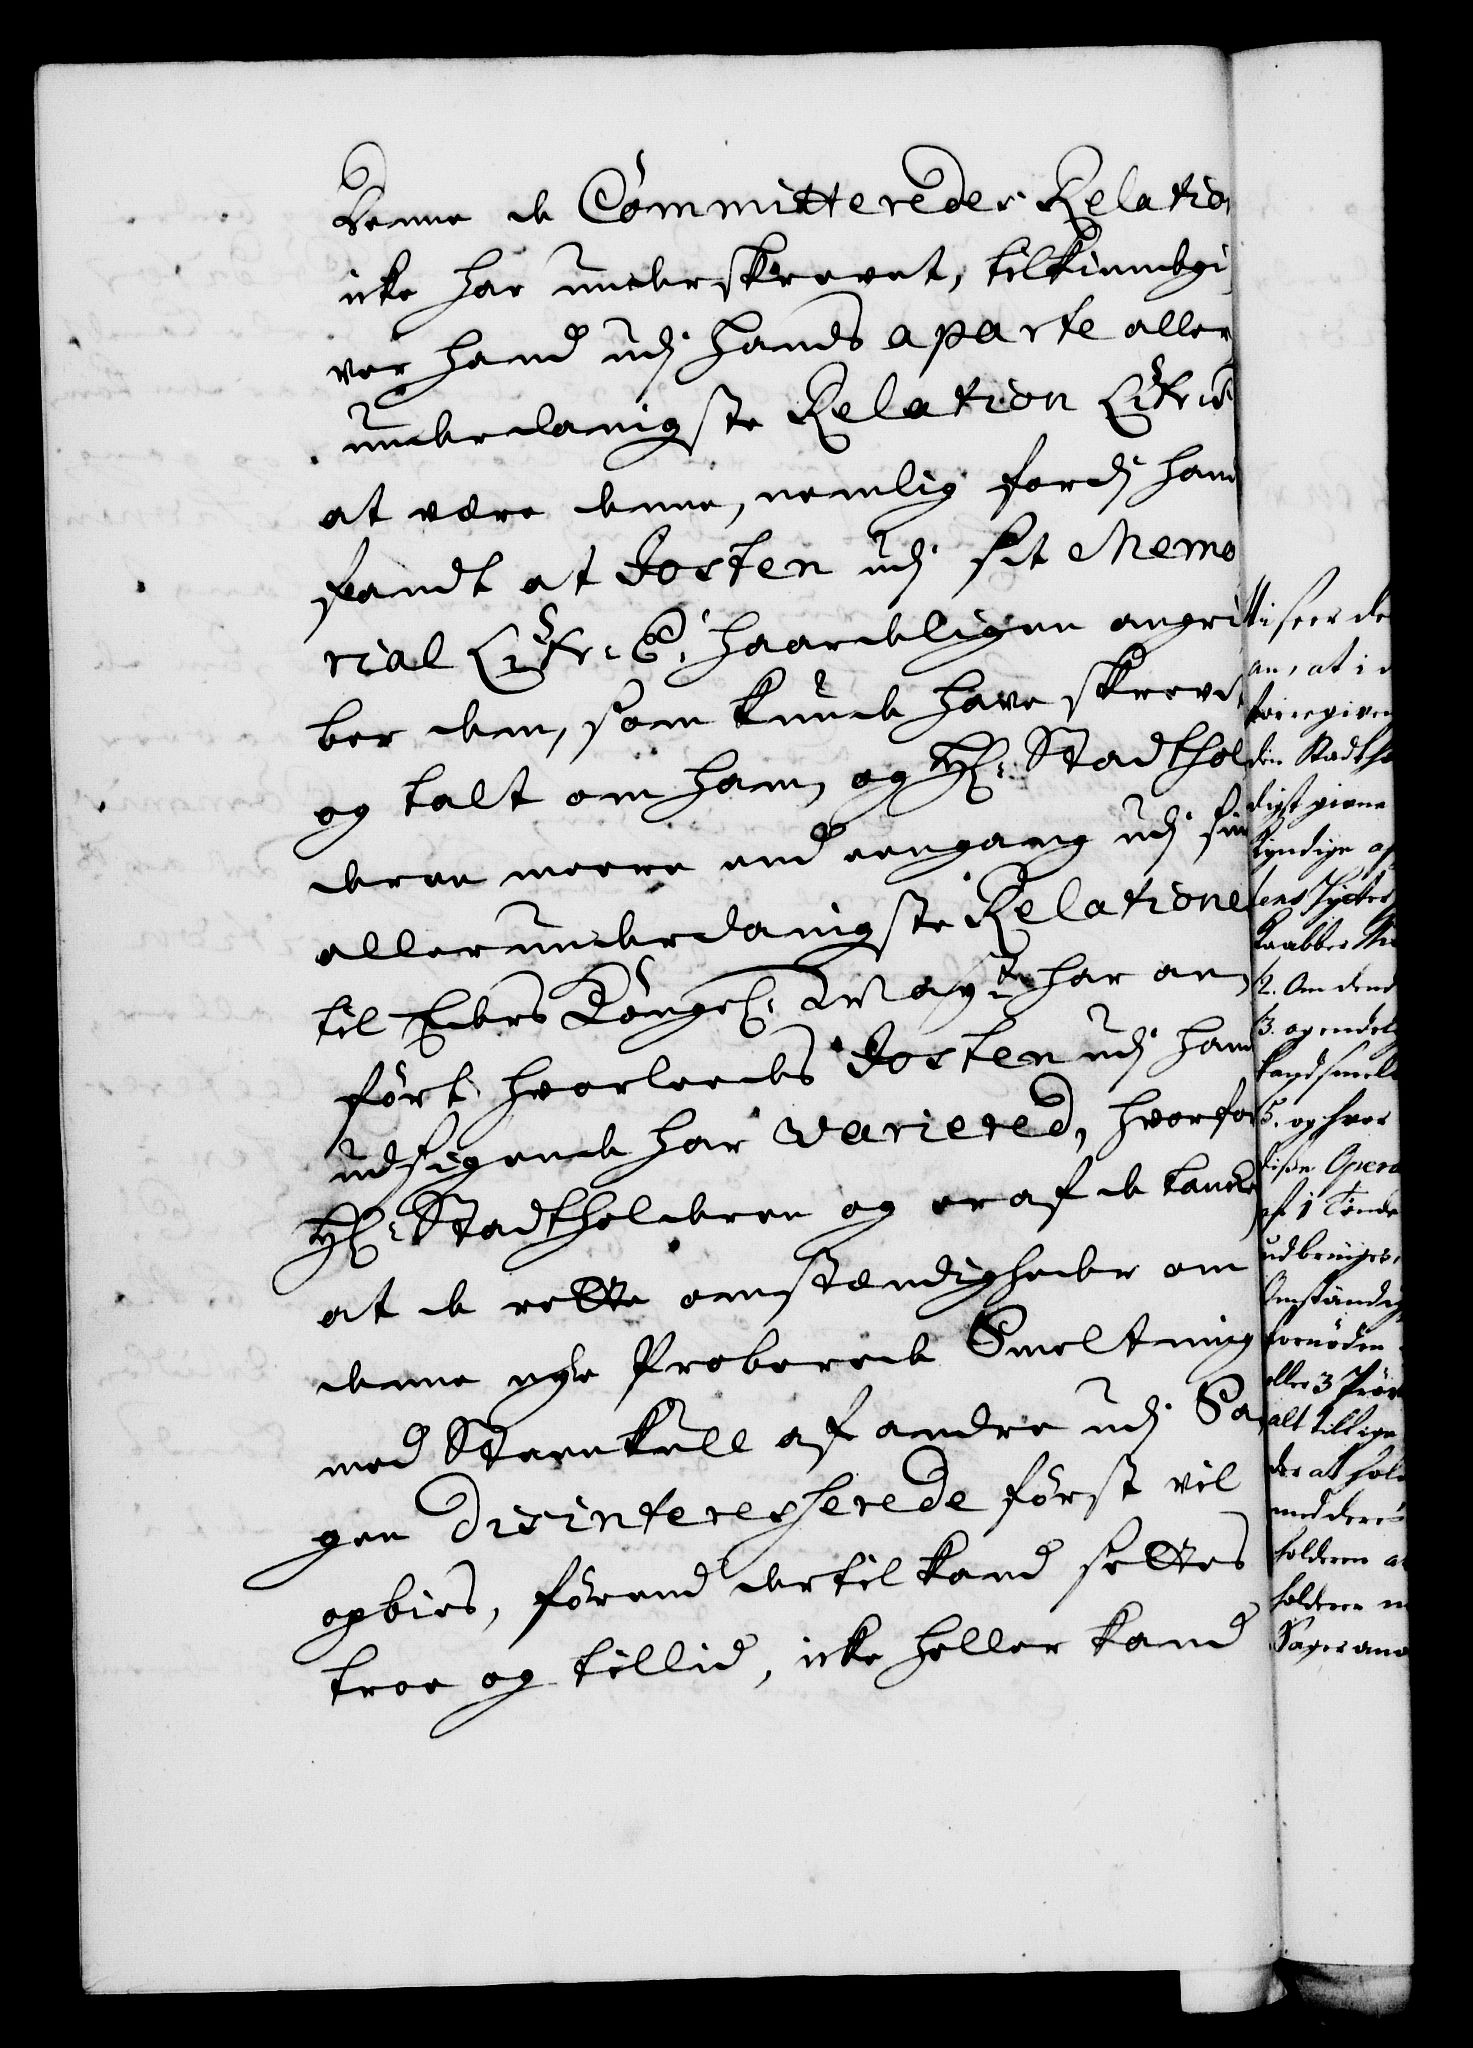 denne de Committeredes Relatio
icke har underskrevet, tilkiendegi
ver hand udj hands aparte aller
underdanigste Relation Litr:
at være denne, nemlig fordj hand
fandt at Josten udj sit Memo
rial Litr: C. haardeligen angri
ber dem, som kunde have skrevet
og talt om ham, og Hr: Stadthol
deren meere end eengang udj sin
allerunderdanigste Relationer
til Eders Kongel: May:ts har an
ført, hvorleedes Josten udj hans
udsigende har varieret, hvorfor
Hr: Stadtholderen og er af de tancker
at de rette omstændigheder om
denne nye Proberede Smeltning
med Steenkull af andre udj Sa
gen disinteresserede først vil
opbies, førend dertil kand settes
troe og tillid, icke heller kand
vi seer de
an, at i
foregiven
din Stadtho
digst givne
kyndige op
tens Hytter
Kaabber
2. Om dend
3. og endel
Landsmelt
5. og hvor
disse Opera
af 1 Tønde
udbringes
Omstændig
fornøden
eller 3 Prøv
alt tillige
der at hol
med deres
holderen a
holderen
Sager